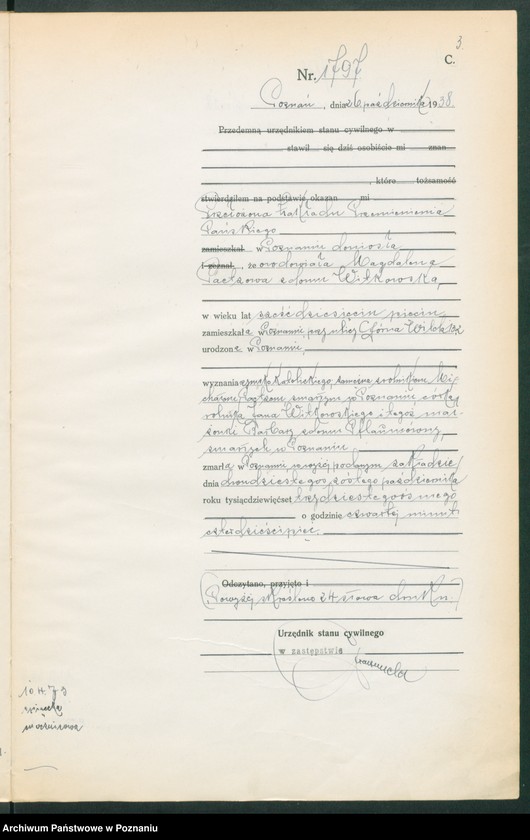 3.
C.
Nr. 1797
Poznań, dnia 26 października 1938.
Przedemną urzędnikiem stanu cywilnego w
stawił się dziś osobiście mi znan
, które tożsamość
stwierdziłem na podstawie okazan mi
Przełożona Zakładu Przemienienia
Pańskiego
zamieszkał w Poznaniu doniosła
i zeznał, że owdowiała Magdalena
Paczkowa z domu Witkowska,
w wieku lat sześćdziesięciu pięciu,
zamieszkała w Poznaniu, przy ulicy Górna Wilda 102
urodzona w Poznaniu,
wyznania rzymsko katolickiego, zamężna z rolnikiem Mi-
chałem, zmarłym w Poznaniu córka
rolnika Jana Witkowskiego i tegoż mał-
żonki Barbary z domu Pflaumówny,
zmarłych w Poznaniu
zmarła w Poznaniu, w wyżej podanym zakładzie
dnia dwudziestego szóstego października
roku tysiącdziewięćset trzydziestego ósmego
o godzinie czwartej minut
czterdzieści pięć.
Odczytano, przyjęto i
Powyżej skreślono 24 słowa druku.
Urzędnik stanu cywilnego
w zastępstwie
Archiwum Państwowe w Poznaniu